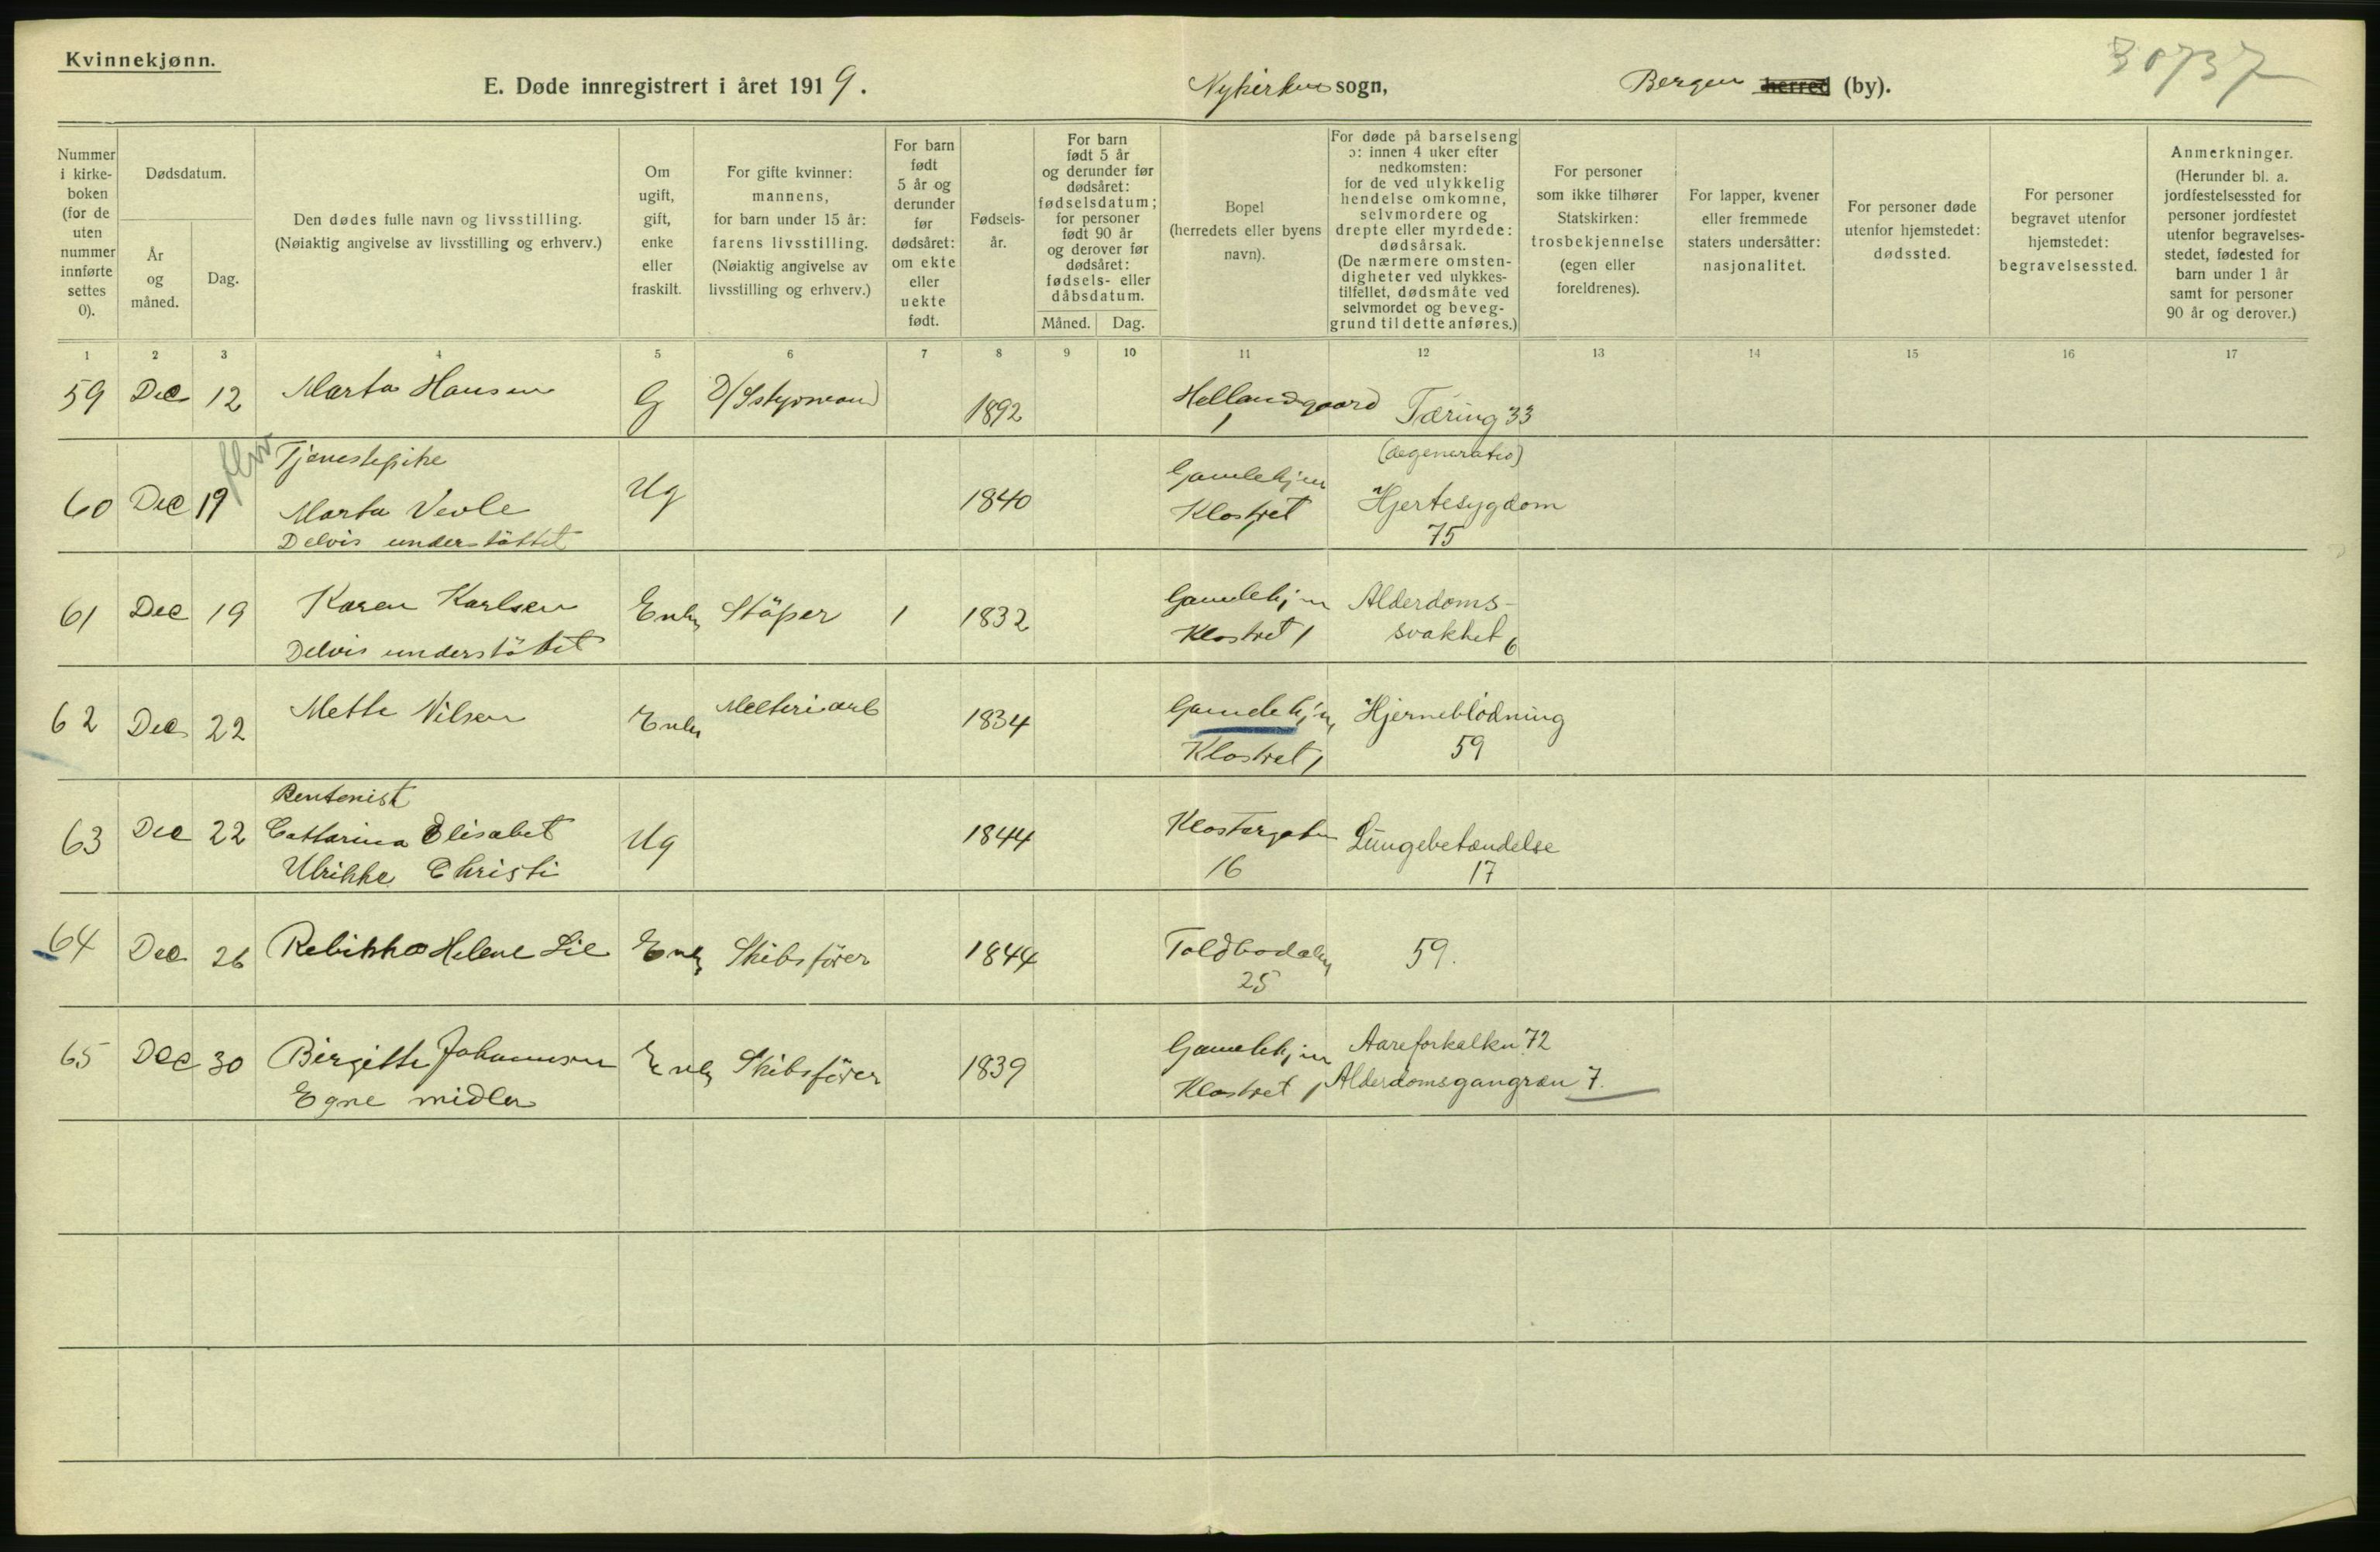 Kvinnekjønn.
30737
E. Døde innregistrert i året 1919. Nykirkens sogn, Bergen herred (by).
Nummer i kirke-boken (for de uten nummer innførte settes 0).
Dødsdatum.
År og måned.
Dag.
Den dødes fulle navn og livsstilling. (Nøiaktig angivelse av livsstilling og erhverv.)
Om ugift, gift, enke eller fraskilt.
For gifte kvinner: mannens, for barn under 15 år: farens livsstilling. (Nøiaktig angivelse av livsstilling og erhverv.)
For barn født 5 år og derunder før dødsåret: om ekte eller uekte født.
Fødsels-år.
For barn født 5 år og derunder før dødsåret: fødselsdatum; for personer født 90 år og derover før dødsåret: fødsels- eller dåbsdatum.
Måned. Dag.
Bopel (herredets eller byens navn).
For døde på barselseng ɔ: innen 4 uker efter nedkomsten: for de ved ulykkelig hendelse omkomne, selvmordere og drepte eller myrdede: dødsårsak. (De nærmere omsten-digheter ved ulykkes-tilfellet, dødsmåte ved selvmordet og beveg-grund til dette anføres.)
For personer som ikke tilhører Statskirken: trosbekjennelse (egen eller foreldrenes).
For lapper, kvener eller fremmede staters undersåtter: nasjonalitet.
For personer døde utenfor hjemstedet: dødssted.
For personer begravet utenfor hjemstedet: begravelsessted.
Anmerkninger. (Herunder bl. a. jordfestelsessted for personer jordfestet utenfor begravelses-stedet, fødested for barn under 1 år samt for personer 90 år og derover.)
1 2 3 4 5 6 7 8 9 10 11 12 13 14 15 16 17
59 Dec 12 Marta Hansen G D/Sstyrmand 1892 Hellandgaard 1 Tæring 33
60 Dec 19 Tjenestepike Ug 1840 Gamlehjem (degeneratio)
Marta Vevle Klostret Hjertesygdom
Delvis understöttet 75
61 Dec 19 Karen Karlsen Enke Stöper 1 1832 Gamlehjem Alderdoms-
Delvis understöttet Klostret 1 svakhet 6
62 Dec 22 Mette Nilsen Enke 1834 Gamlehjem Hjerneblödning
Klostret 1 59
63 Dec 22 Rentenist
Cattarina Elisabet Ug 1844 Klostergaten Lungebetændelse
Ulrikke Christi 16 17
64 Dec 26 Rebikka Helene Lie Enke Skibsförer 1844 Toldbodalm 59.
25
65 Dec 30 Birgitte Johannesen Enke Skibsförer 1839 Gamlehjem Aareforkalkn 72
Egne midler Klostret 1 Alderdomsgangræn 7.